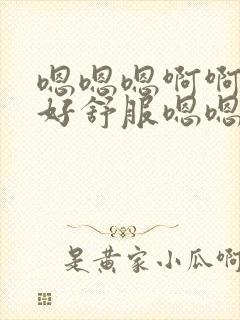 嗯嗯嗯啊啊
好舒服嗯嗯
是黄家小瓜啊